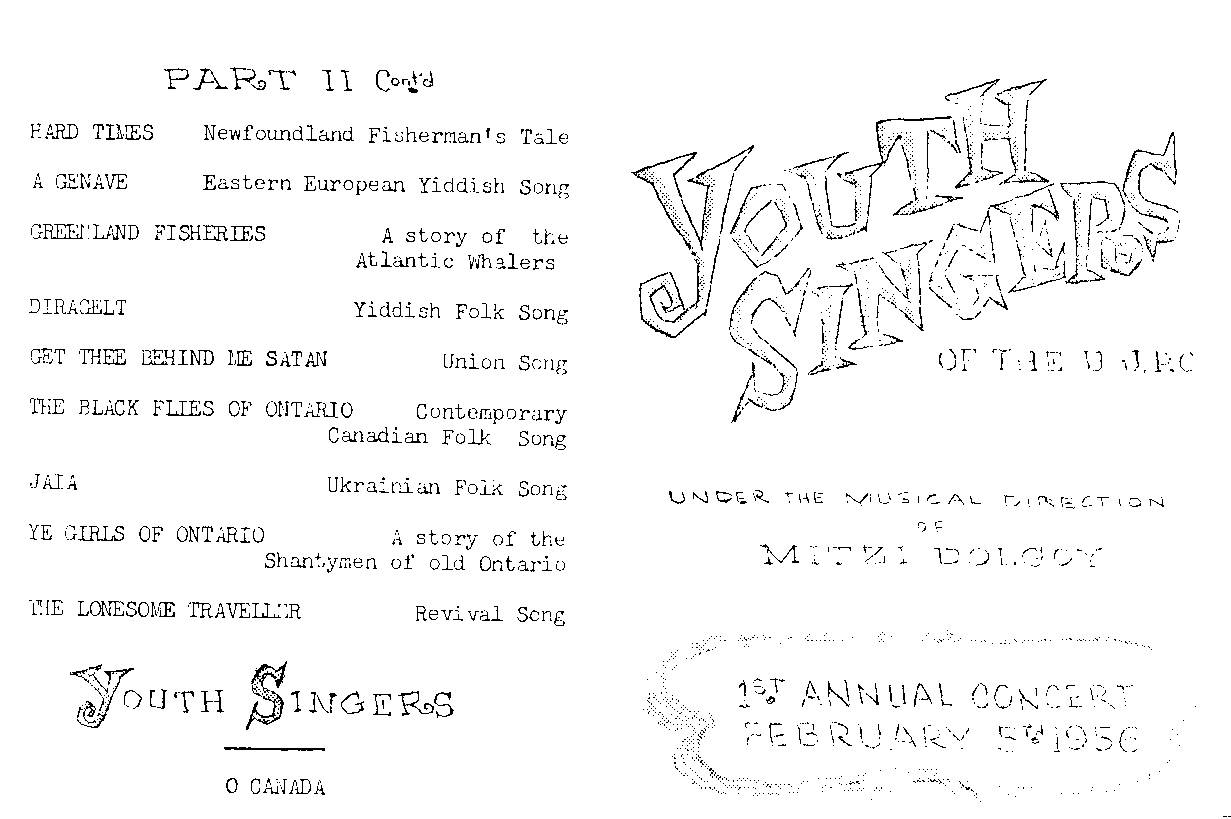 PART II Cont'd
HARD TIMES Newfoundland Fisherman's Tale
A GENAVE Eastern European Yiddish Song
GREENLAND FISHERIES A story of the
Atlantic Whalers
DIRAGELT Yiddish Folk Song
GET THEE BEHIND ME SATAN Union Song
THE BLACK FLIES OF ONTARIO Contemporary
Canadian Folk Song
JAIA Ukrainian Folk Song
YE GIRLS OF ONTARIO A story of the
Shantymen of old Ontario
THE LONESOME TRAVELLER Revival Song
YOUTH SINGERS
O CANADA
YOUTH
SINGERS
OF THE U.J.P.O
UNDER THE MUSICAL DIRECTION
OF
MITZI DOLGOY
1ST ANNUAL CONCERT
FEBRUARY 5TH 1956